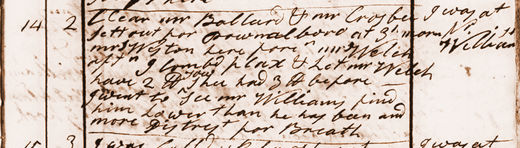 14 2 Clear mr Ballard & mr Crosbee I was at
sett out for Pownalboro at 3h morn mr
mrs Weston here fore nn mrs Welch Williams
aftn I Combd flax & let mr Welch
have 2 lb Shee had 3 lb before
I went to See mr Williams find
him Lower than he has been and
more Distrest for Breath
15 3 I was I was at